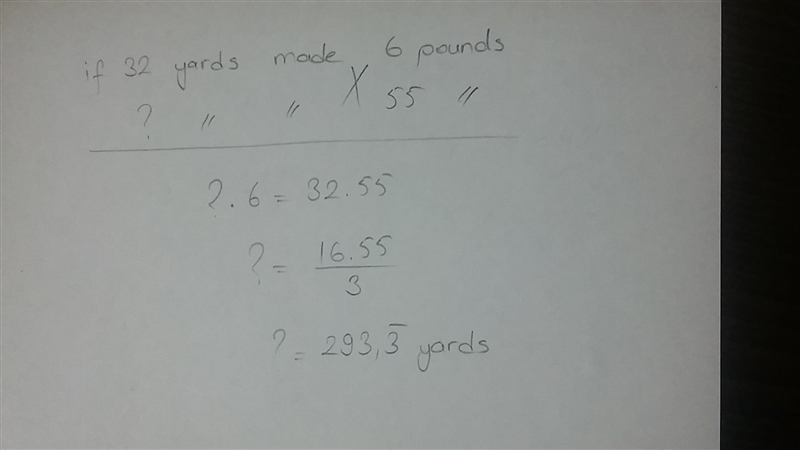 if 32 yards made 6 pounds
? " " X 55 "
?.6 = 32.55
? = 16.55
3
? = 293,3̅ yards